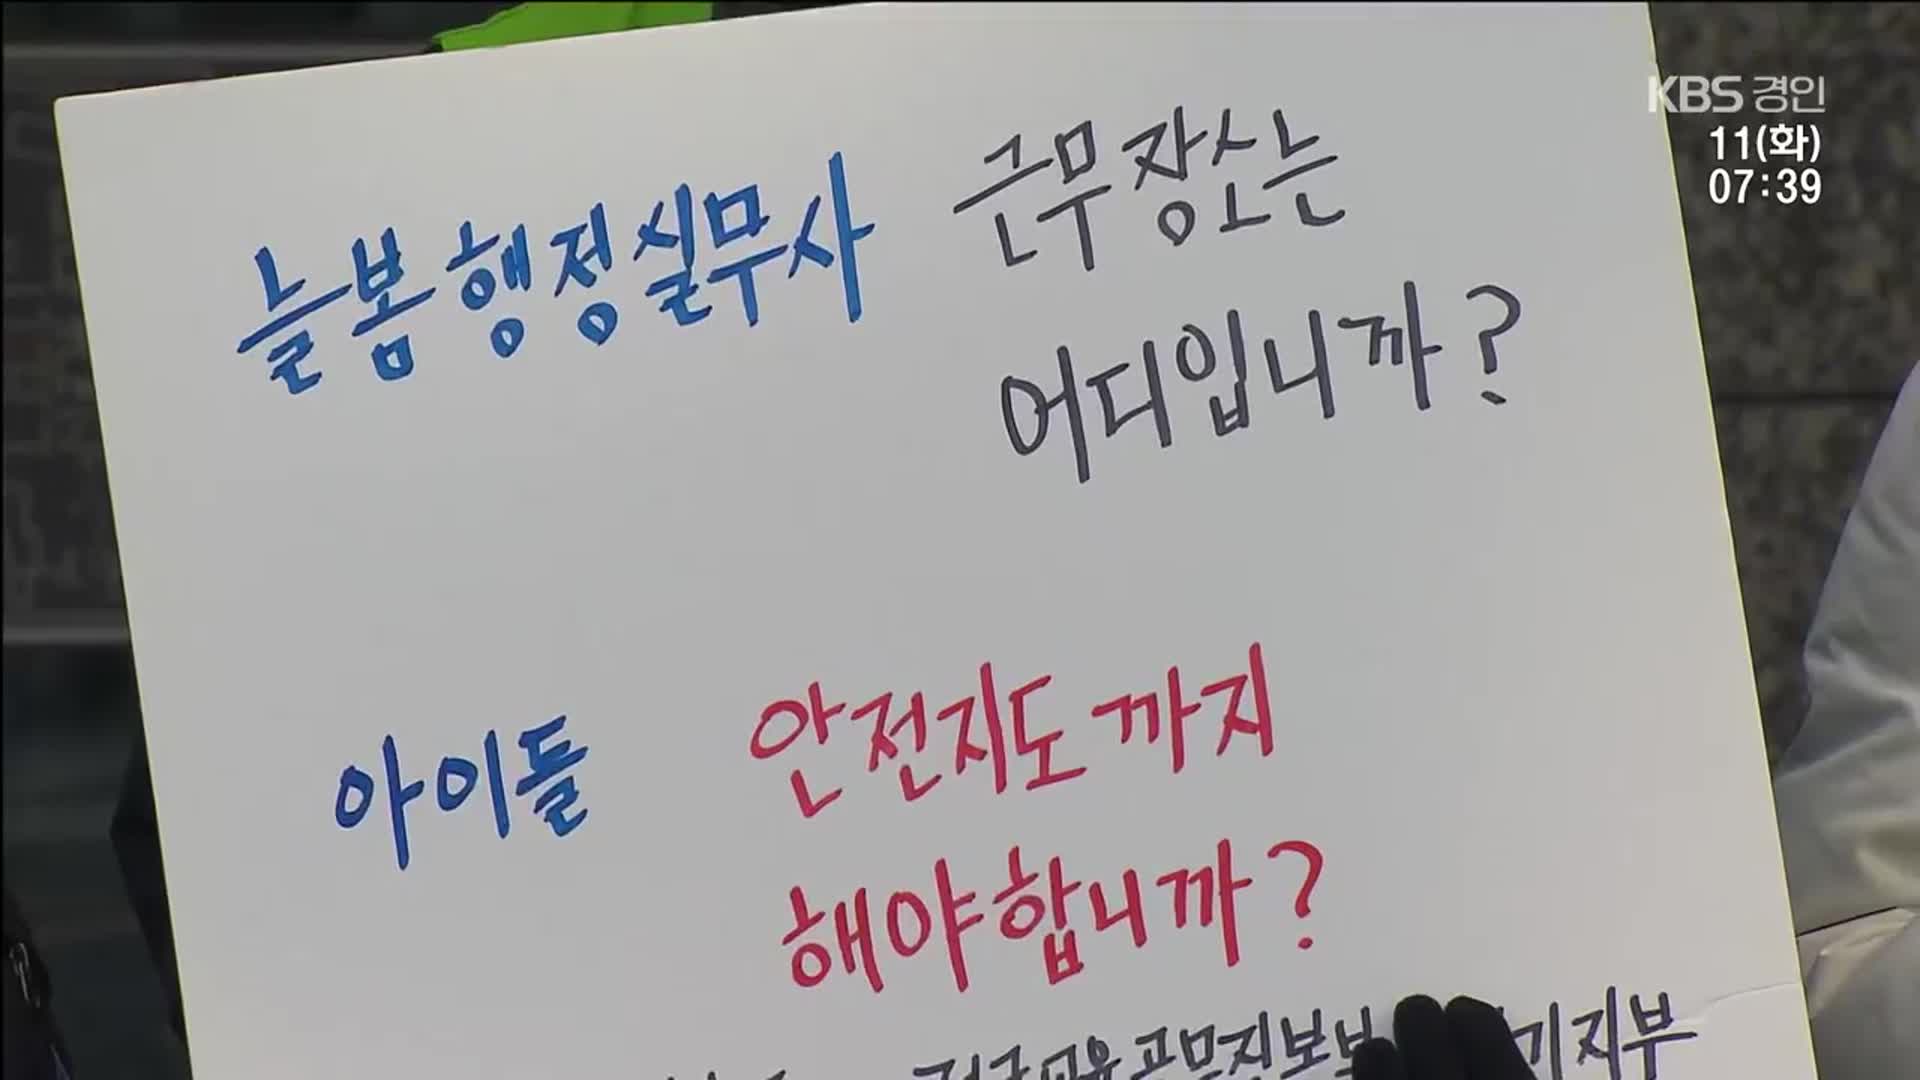 KBS 경인
11(화)
07:39
늘봄행정실무사 근무장소는
어디입니까?
아이들 안전지도까지
해야합니까?
기지부